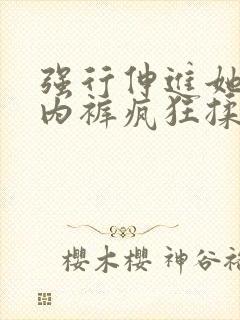 强行伸进她
内裤疯狂揉
櫻木櫻 神谷裕